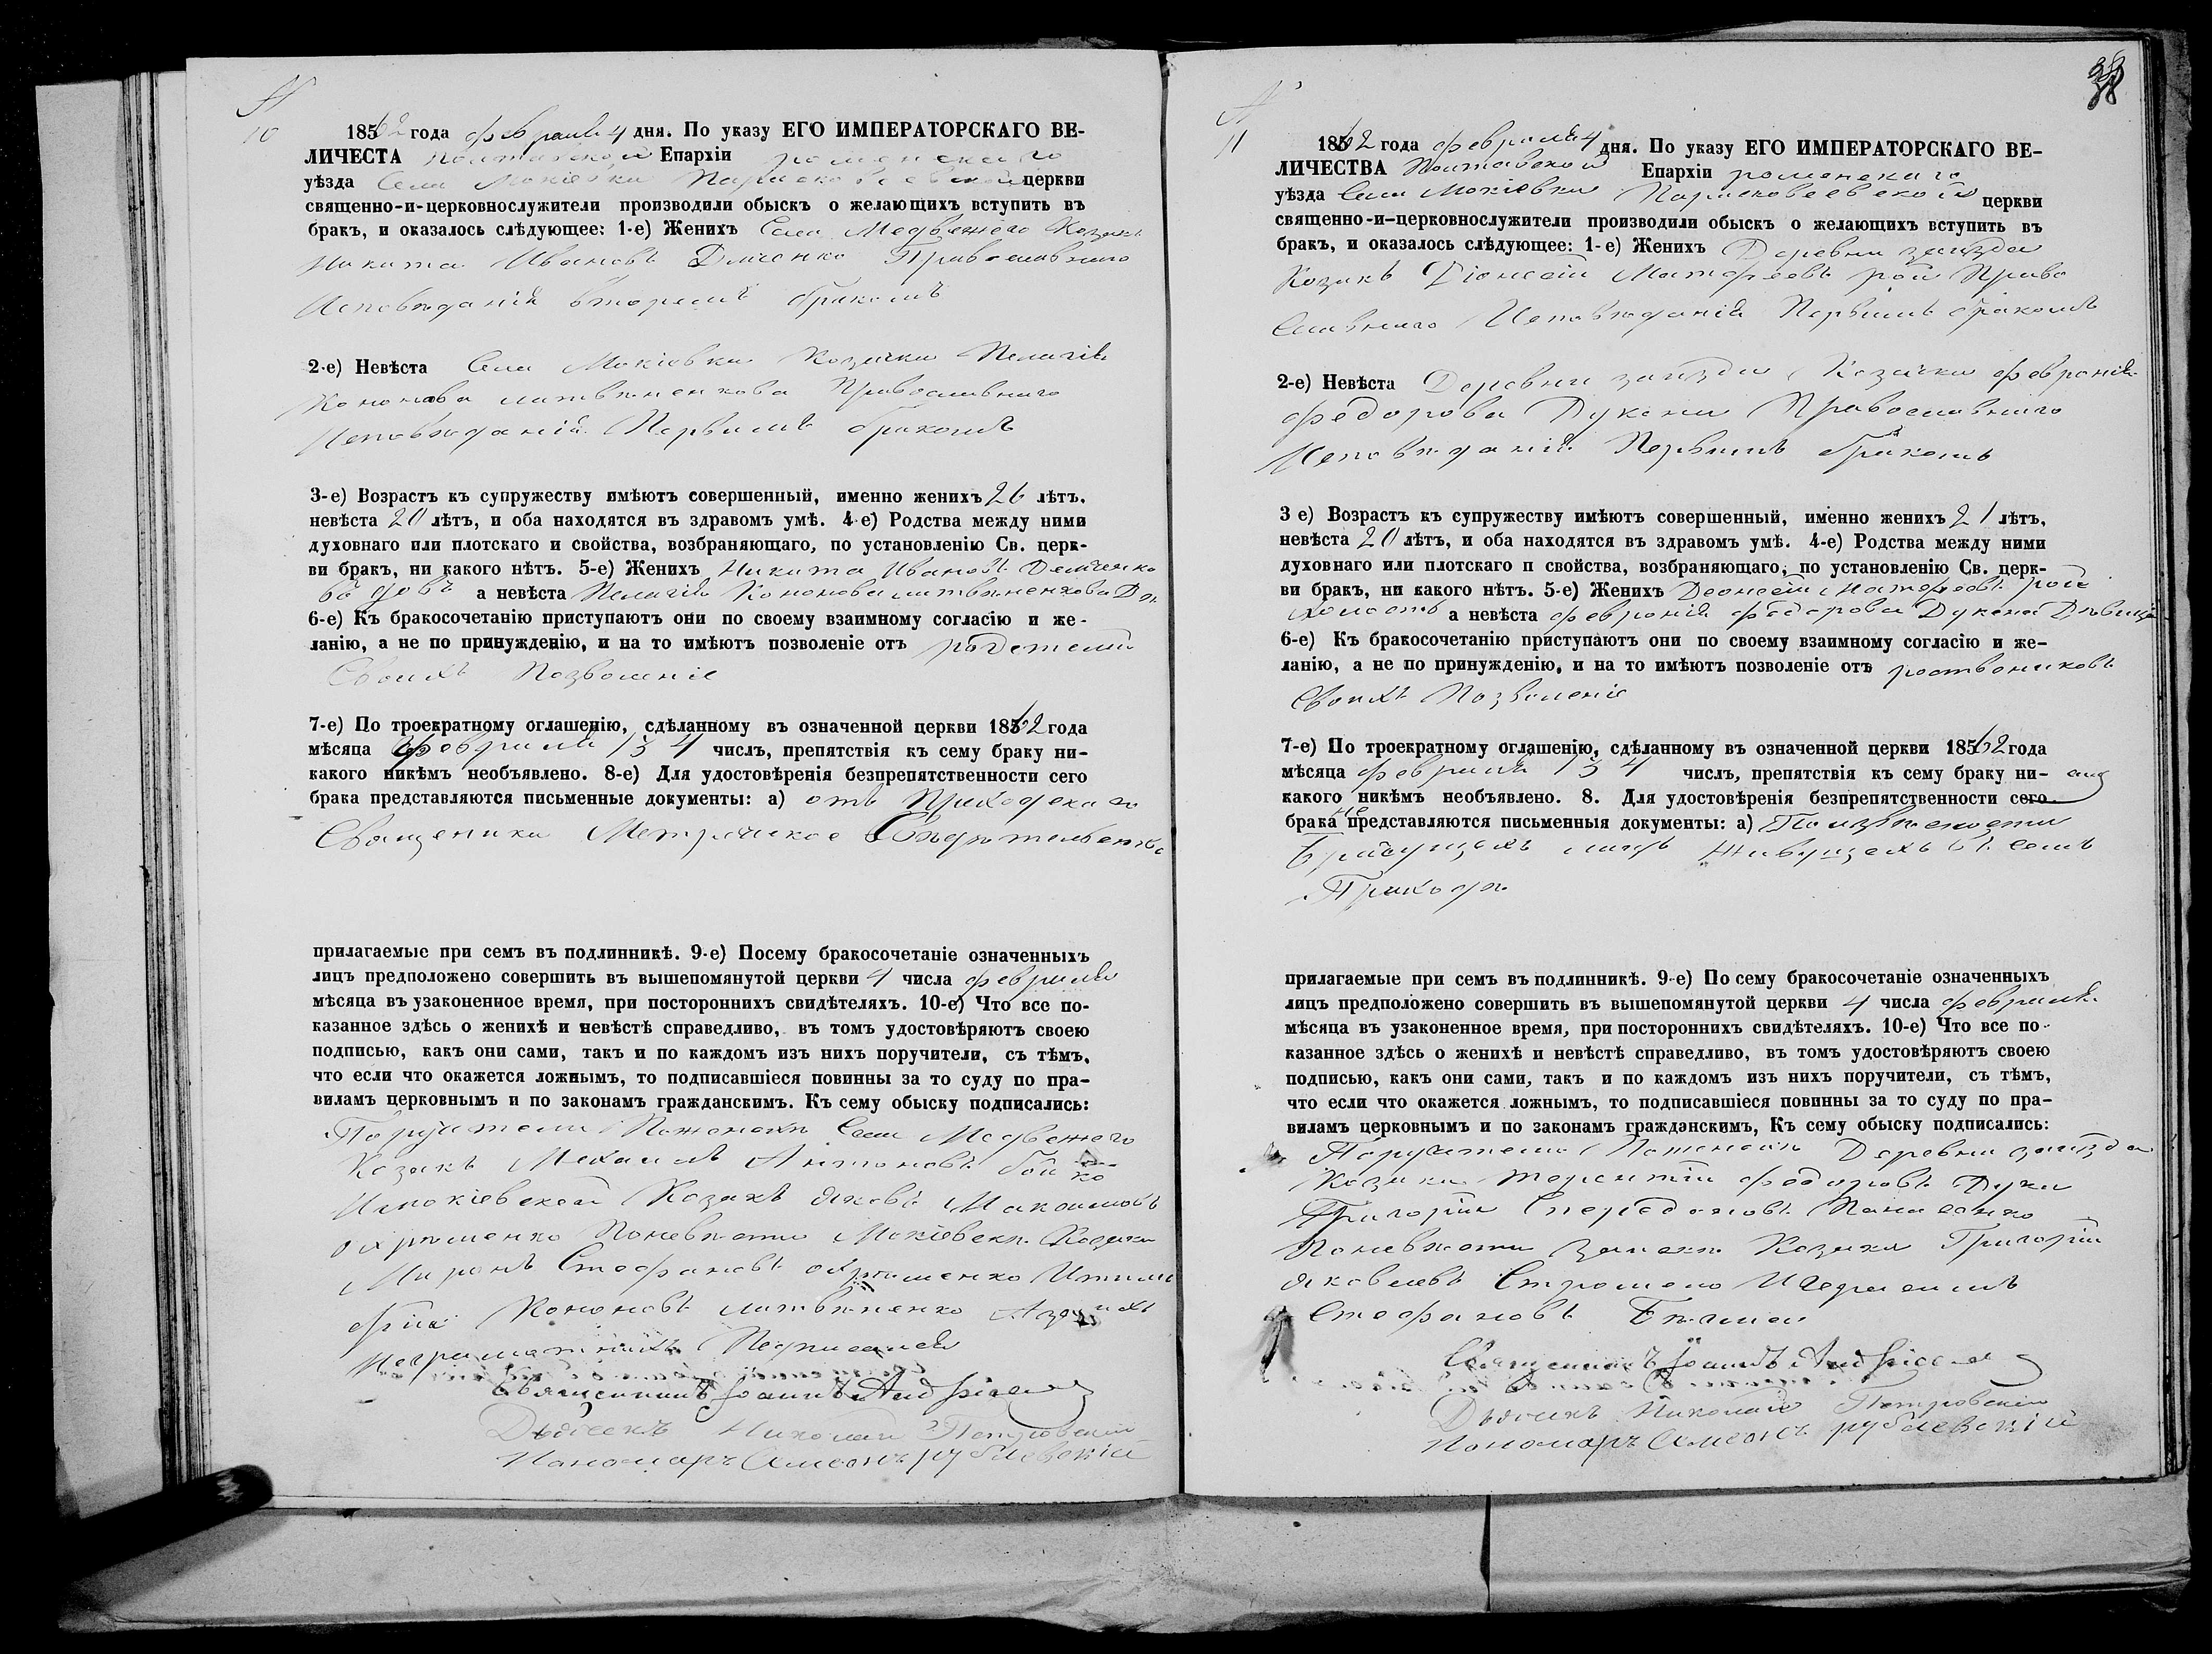 №
10
1862 года февраля 4 дня. По указу ЕГО ИМПЕРАТОРСКАГО ВЕ-
ЛИЧЕСТА Полтавской Епархіи роменскаго
уѣзда Села Мокіевки Параскевіевской церкви
священно-и-церковнослужители производили обыскъ о желающихъ вступить въ
бракъ, и оказалось слѣдующее: 1-е) Женихъ Села Медвежего Козакъ
Никита Ивановъ Демченко Православнаго
Исповѣданія вторымъ бракомъ
2-е) Невѣста Села Мокіевки Козачка Пелагія
Кононова литвиненкова Православнаго
Исповѣданія Первымъ бракомъ
3-е) Возрастъ къ супружеству имѣютъ совершенный, именно женихъ 26 лѣтъ.
невѣста 20 лѣтъ, и оба находятся въ здравомъ умѣ. 4-е) Родства между ними
духовнаго или плотскаго и свойства, возбраняющаго, по установленію Св. церк-
ви бракъ, ни какого нѣтъ. 5-е) Женихъ Никита Ивановъ Демченко
вдовъ а невѣста Пелагія Кононова литвиненкова
6-е) Къ бракосочетанію приступаютъ они по своему взаимному согласію и же-
ланію, а не по принужденію, и на то имѣютъ позволеніе отъ родетелей
Своихъ Позволеніе
7-е) По троекратному оглашенію, сдѣланному въ означенной церкви 1862 года
мѣсяца февраля 1 3 4 числъ, препятствія къ сему браку ни-
какого никѣмъ необъявлено. 8-е) Для удостовѣренія безпрепятственности сего
брака представляются письменные документы: а) отъ Приходскаго
Священика Метрическое Свидѣтельство
прилагаемые при семъ въ подлинникѣ. 9-е) Посему бракосочетаніе означенныхъ
лицъ предположено совершить въ вышепомянутой церкви 4 числа февраля
мѣсяца въ узаконенное время, при постороннихъ свидѣтеляхъ. 10-е) Что все по-
казанное здѣсь о женихѣ и невѣстѣ справедливо, въ томъ удостовѣряютъ своею
подписью, какъ они сами, такъ и по каждомъ изъ нихъ поручители, съ тѣмъ,
что если что окажется ложнымъ, то подписавшіеся повинны за то суду по пра-
виламъ церковнымъ и по законамъ гражданскимъ. Къ сему обыску подписались:
Поручители По женихѣ Села Медвежего
Козакъ Михаилъ Антоновъ бойко
И мокіевской Козакъ Яковъ
По невѣсти Мокіевски Козаки
Миронъ Стефановъ
Кононовъ литвиненко А за нихъ
неграматныхъ
Священникъ Іоаннъ
Дьячекъ Николай Петровскій
Пономаръ Симеонъ рублевскій
38
№
11
1862 года февраля 4 дня. По указу ЕГО ИМПЕРАТОРСКАГО ВЕ-
ЛИЧЕСТВА Полтавской Епархіи роменскаго
уѣзда Села Мокіевки Параскевеевской церкви
священно-и-церковнослужители производили обыскъ о желающихъ вступить въ
бракъ, и оказалось слѣдующее: 1-е) Женихъ Деревни заизда
Козакъ Діонсій Матфеевъ рой Право
Славнаго Исповѣданія Первымъ бракомъ
2-е) Невѣста Деревни заизда Козачка февронія
федорова Дукена Православнаго
Исповѣданія Первымъ бракомъ
3 е) Возрастъ къ супружеству имѣютъ совершенный, именно женихъ 21 лѣтъ,
невѣста 20 лѣтъ, и оба находятся въ здравомъ умѣ. 4-е) Родства между ними
духовнаго или плотскаго п свойства, возбраняющаго, по установленію Св. церк-
ви бракъ, ни какого нѣтъ. 5-е) Женихъ Деонсій Матфеовъ рой
холостъ а невѣста февронія федорова Дукена Дѣвица
6-е) Къ бракосочетанію приступаютъ они по своему взаимному согласію и же-
ланію, а не по принужденію, и на то имѣютъ позволеніе отъ роствениковъ
Своихъ Позволеніе
7-е) По троекратному оглашенію, сдѣланному въ означенной церкви 1862 года
мѣсяца февраля 1 3 4 числъ, препятствія къ сему браку ни-
какого никѣмъ необъявлено. 8. Для удостовѣренія безпрепятственности сего
брака не представляются письменныя документы: а) По извѣсности
Брачущихъ лицъ Живущихъ въ семъ
Приходѣ
прилагаемые при семъ въ подлинникѣ. 9-е) По сему бракосочетаніе означенныхъ
лицъ предположено совершить въ вышепомянутой церкви 4 числа февраля
мѣсяца въ узаконенное время, при постороннихъ свидѣтеляхъ. 10-е) Что все по-
казанное здѣсь о женихѣ и невѣстѣ справедливо, въ томъ удостовѣряютъ своею
подписью, какъ они сами, такъ и по каждомъ изъ нихъ поручители, съ тѣмъ,
что если что окажется ложнымъ, то подписавшіеся повинны за то суду по пра-
виламъ церковнымъ и по законамъ гражданскимъ, Къ сему обыску подписались:
Поручители По женихѣ Деревни заизда
Козаки терентій федоровъ Дука
Григорій Спередоновъ Панасенко
По невѣсти Козаки Григорій
Яковлевъ
Стефановъ
Священникъ Іоаннъ
Дьячекъ Николай Петровскій
Пономаръ Симеонъ рублевскій